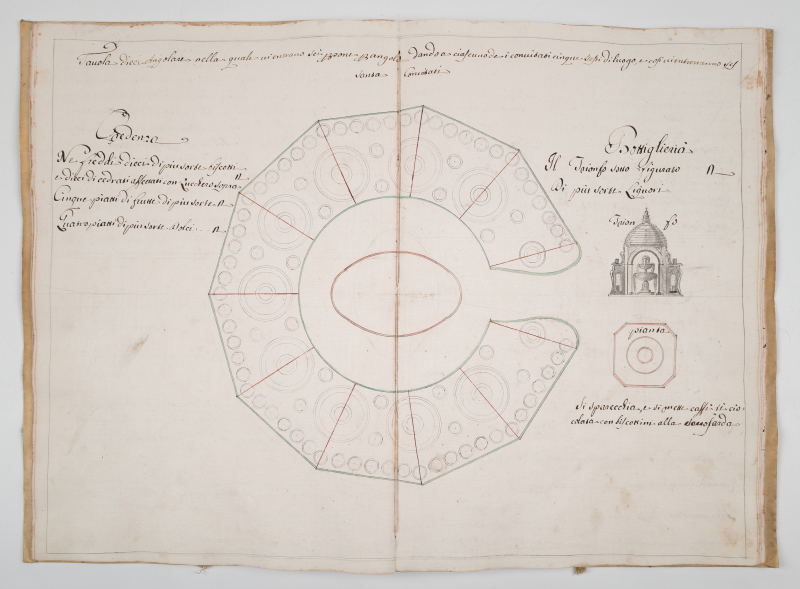 Tavola dieci Angolare nella quale vi entrano sei persone p angolo Dando a ciascuno de i convitati cinque
santa Convitati
Credenza
Ne freddi dieci di piu sorte biscotti
e dieci di cedrati affettati con Zucchero sopra
Cinque piatti di frutti di piu sorte
Quatro piatti di piu sorte Dolci
Bottiglieria
Il Trionfo sotto
Di piu sorte Liquori
Trion fo
pianta
Si sparecchia, e si mette caffè té cio
colata con biscottini alla